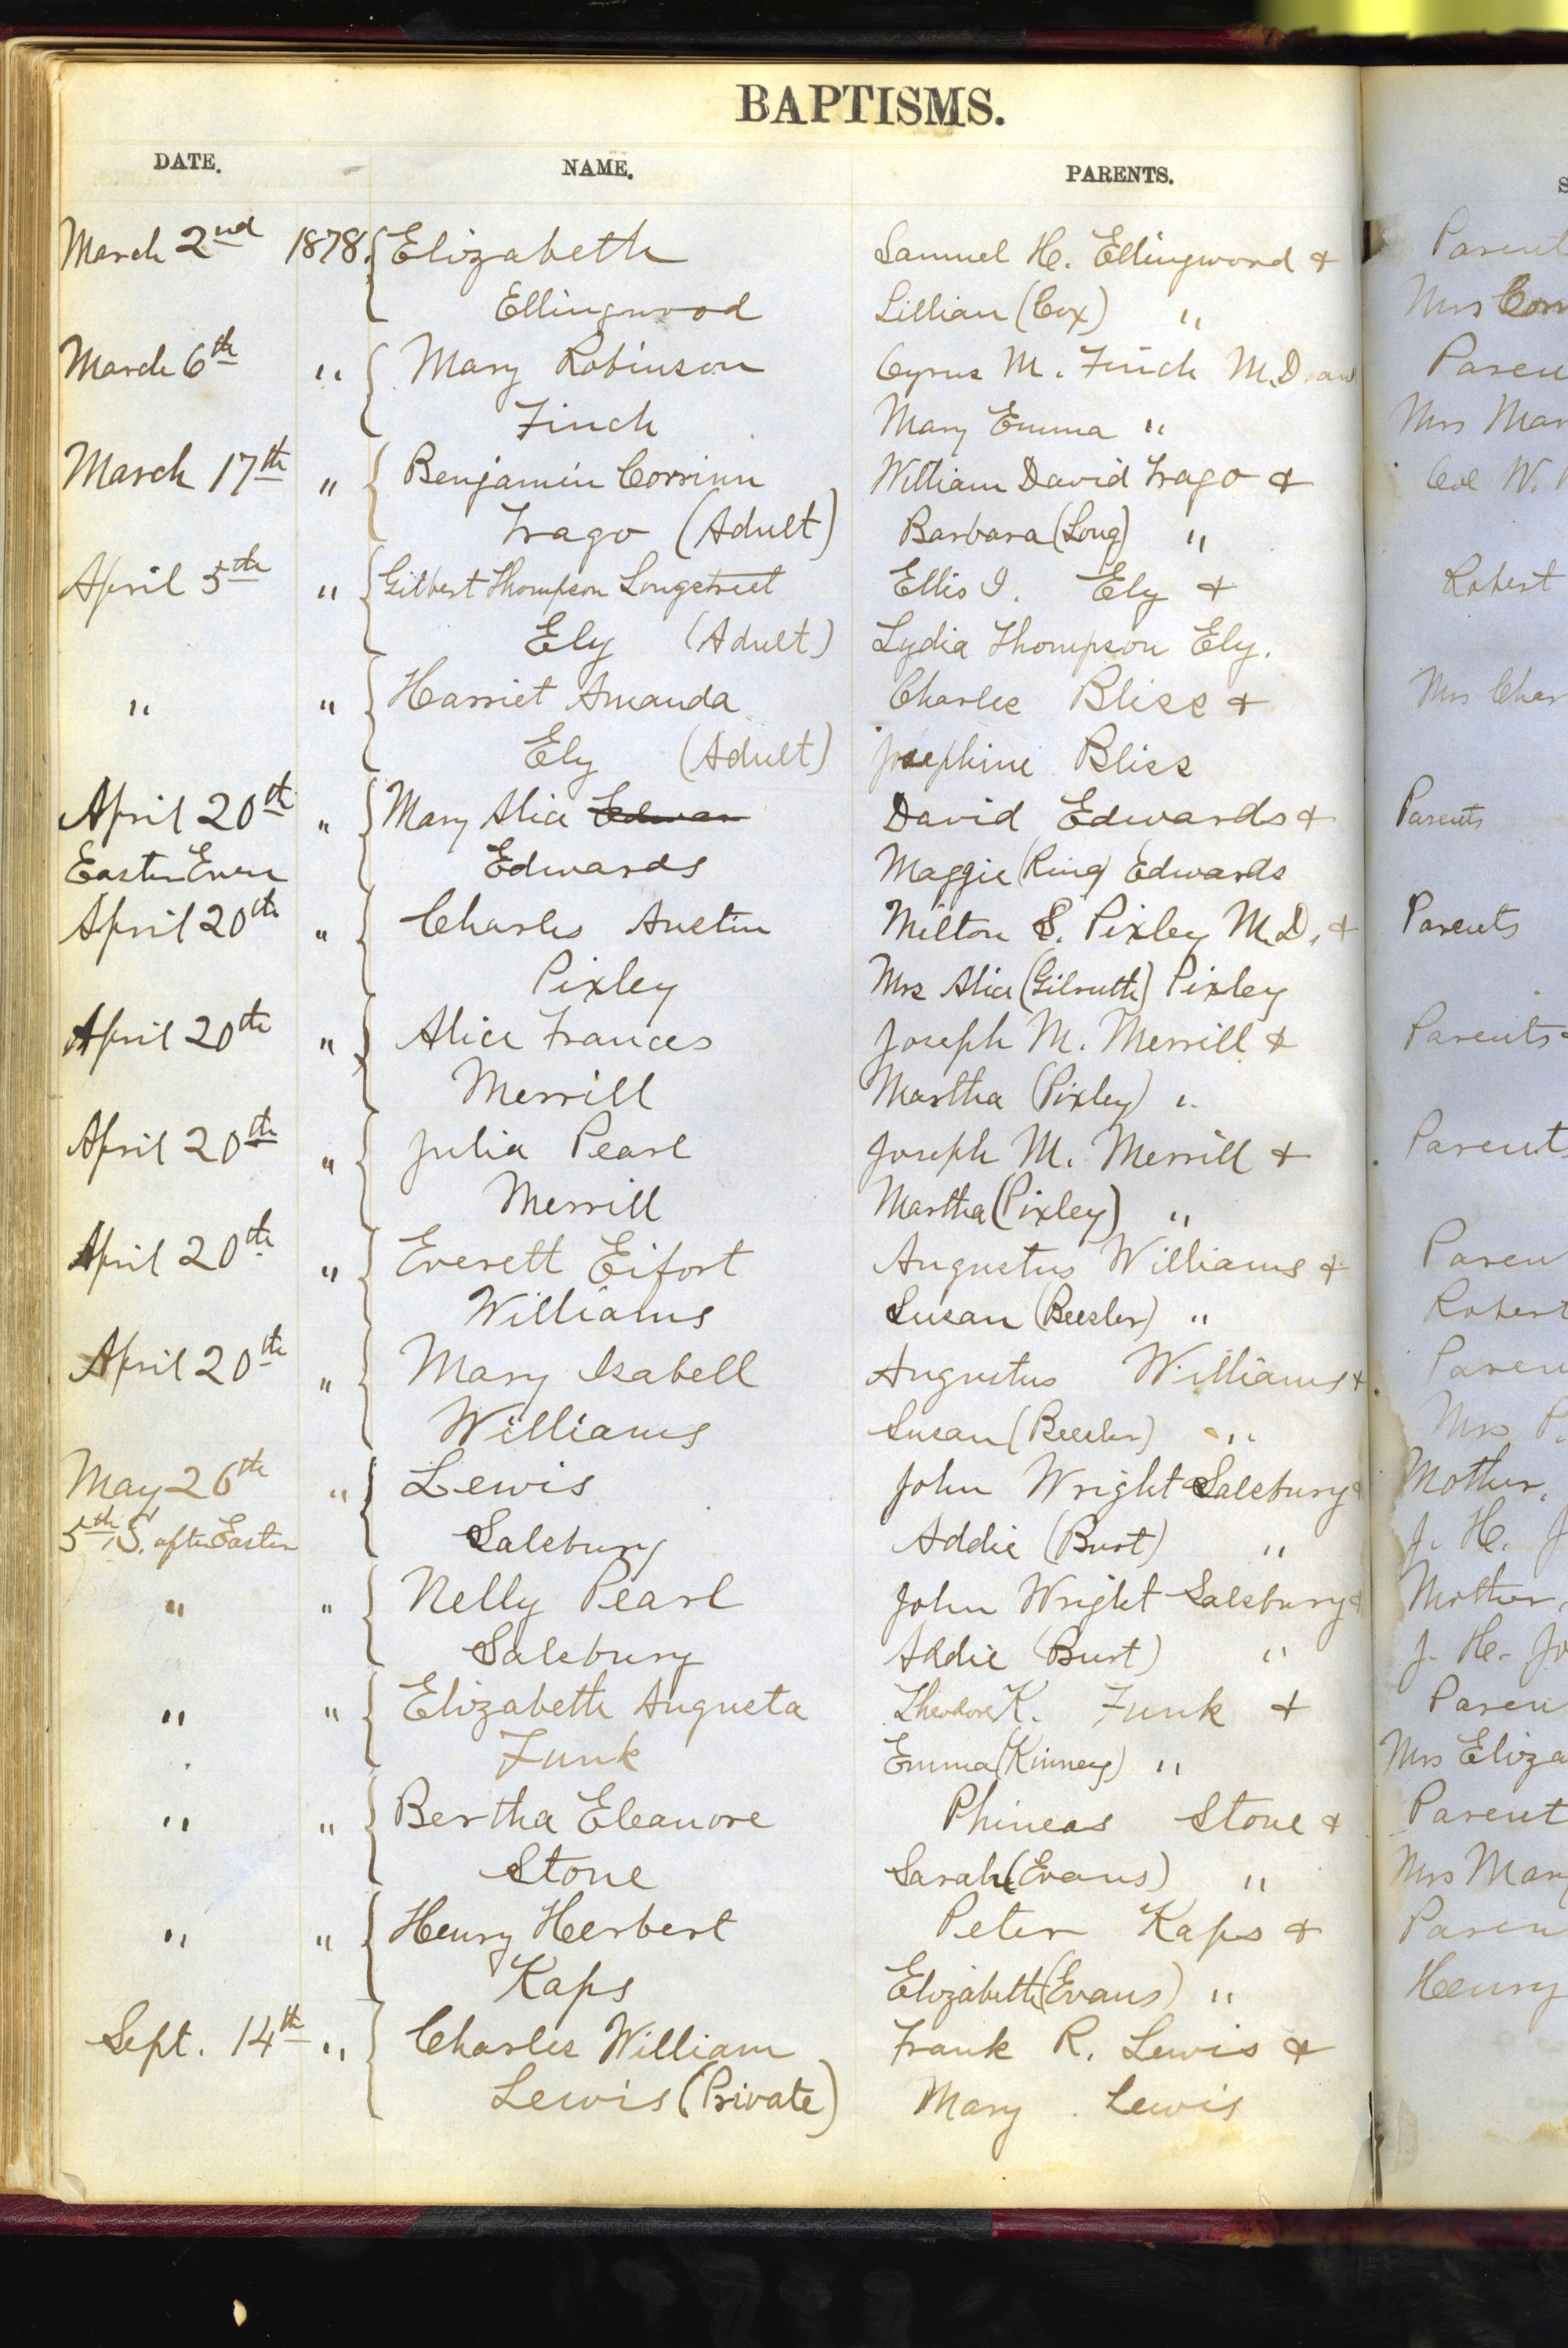 BAPTISMS.
DATE. NAME. PARENTS. S
March 2nd 1878. Elizabeth Samuel H. Ellingwood + Parent
Ellingwood Lillian (Cox) " Mrs Corr
March 6th " Mary Robinson Cyrus M. Finch M.D. an Paren
Finch Mary Emma " Mrs Mar
March 17th " Benjamin Corrinn William David Trago + Col W.
Trago (Adult) Barbara (Long) "
April 5th " Gilbert Thompson Longstreet Ellis I. Ely + Robert
Ely (Adult) Lydia Thompson Ely.
" " Harriet Amanda Charles Bliss + Mrs Char
Ely (Adult) Josephine Bliss
April 20th " Mary Alice Edwar David Edwards + Parents
Easter Even Edwards Maggie (Ring) Edwards
April 20th " Charles Austin Milton S. Pixley M.D. + Parents
Pixley Mrs Alice (Gilruth) Pixley
April 20th " Alice Frances Joseph M. Merrill + Parents
Merrill Martha (Pixley) "
April 20th " Julia Pearl Joseph M. Merrill + Parents
Merrill Martha (Pixley) "
April 20th " Everett Eifort Augustus Williams + Paren
Williams Susan (Beesler) " Robert
April 20th " Mary Isabell Augustus Williams + Paren
Williams Susan (Beesler) " Mrs P.
May 26th " Lewis John Wright Salsbury + Mother,
5th S. after Easter Salsbury Addie (Burt) " J. H. J
" " Nelly Pearl John Wright Salsbury + Mother,
Salsbury Addie (Burt) " J. H. Jo
" " Elizabeth Augusta Theodore K. Funk + Paren
Funk Emma (Kinney) " Mrs Eliza
" " Bertha Eleanore Phineas Stone + Parent
Stone Sarah (Evans) " Mrs Mary
" " Henry Herbert Peter Kaps + Paren
Kaps Elizabeth (Evans) " Henry
Sept. 14th " Charles William Frank R. Lewis +
Lewis (Private) Mary Lewis